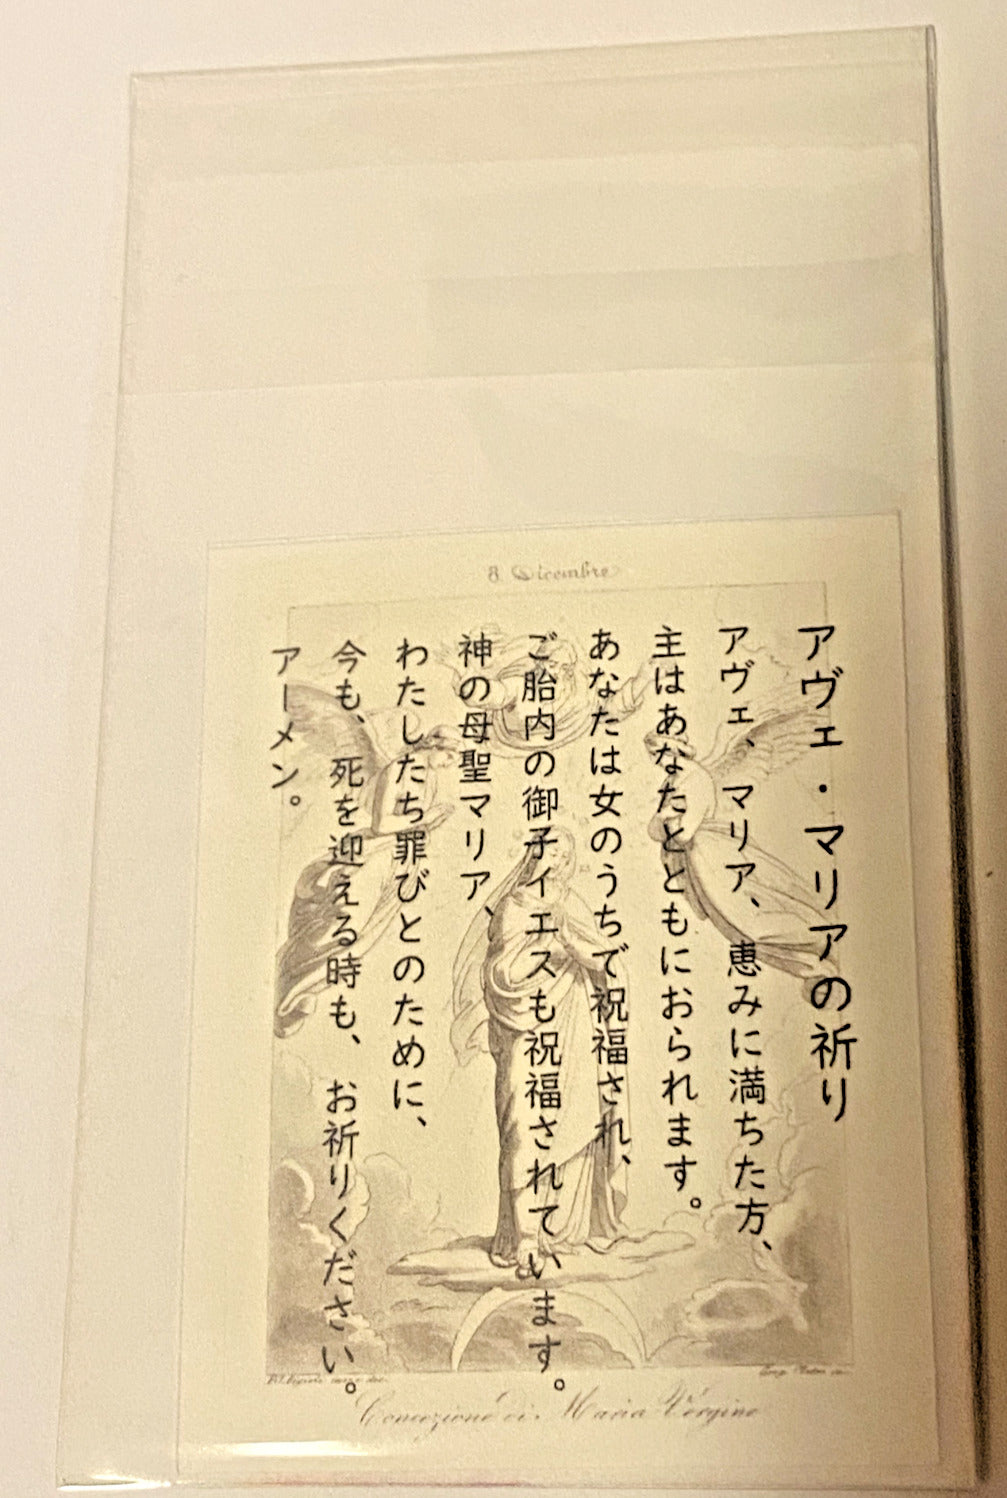 8. Dicembre
アヴェ・マリアの祈り
アヴェ、マリア、恵みに満ちた方、
主はあなたとともにおられます。
あなたは女のうちで祝福され、
ご胎内の御子イエスも祝福されています。
神の母聖マリア、
わたしたち罪びとのために、
今も、死を迎える時も、お祈りください。
アーメン。
Concezione di Maria Vergine